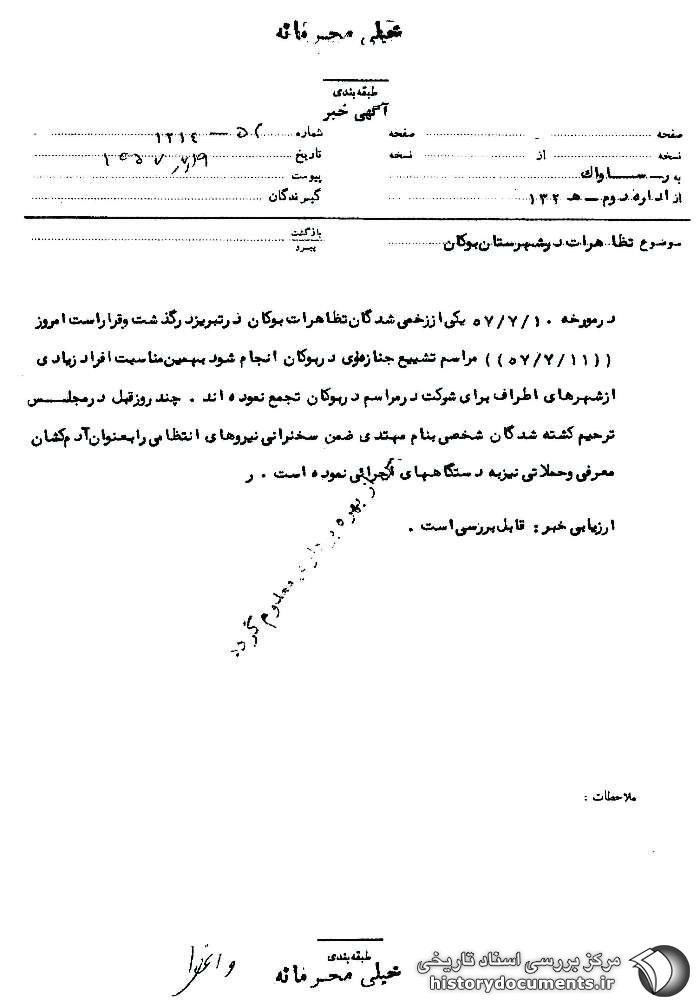 خیلی محرمانه
طبقه‌بندی
آگهی خبر
صفحه صفحه شماره ۵۲ – ۱۲۱٤
نسخه از نسخه تاریخ ۱۳۵۷ر۷ر۱۹
به ر– ساواك پیوست
از اداره دوم – هـ ۱۳۲ گیرندگان
موضوع تظاهرات در شهرستان بوکان بازگشت
پیرو
در مورخه ۵۷/۷/۱۰ یکی از زخمی شدگان تظاهرات بوکان در تبریز درگذشت و قرار است امروز
((۵۷/۷/۱۱)) مراسم تشییع جنازه‌وی در بوکان انجام شود بهمین مناسبت افراد زیادی
از شهرهای اطراف برای شرکت در مراسم در بوکان تجمع نموده اند . چند روز قبل در مجلس
ترحیم کشته شدگان شخصی بنام مهتدی ضمن سخنرانی نیروهای انتظامی را بعنوان آدم کشان
معرفی و حملاتی نیز به دستگاههای اجرائی نموده است . ر
ارزیابی خبر : قابل بررسی است .
بهره برداری معدوم گردد
ملاحظات :
طبقه‌بندی
خیلی محرمانه
مرکز بررسی اسناد تاریخی
historydocuments.ir